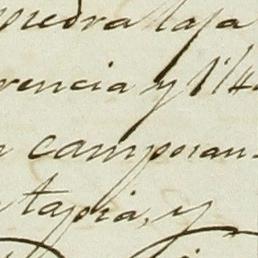 piedra laja
rencia y 1'4
camposan-
tapia, y